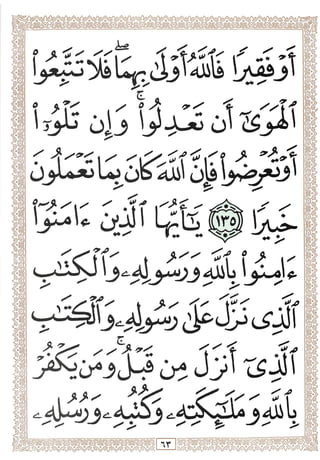 أَوۡ فَقِيرٗا فَٱللَّهُ أَوۡلَىٰ بِهِمَاۖ فَلَا تَتَّبِعُواْ
ٱلۡهَوَىٰٓ أَن تَعۡدِلُواْۚ وَإِن تَلۡوُۥٓاْ
أَوۡ تُعۡرِضُواْ فَإِنَّ ٱللَّهَ كَانَ بِمَا تَعۡمَلُونَ
خَبِيرٗا ١٣٥ يَٰٓأَيُّهَا ٱلَّذِينَ ءَامَنُوٓاْ
ءَامِنُواْ بِٱللَّهِ وَرَسُولِهِۦ وَٱلۡكِتَٰبِ
ٱلَّذِي نَزَّلَ عَلَىٰ رَسُولِهِۦ وَٱلۡكِتَٰبِ
ٱلَّذِيٓ أَنزَلَ مِن قَبۡلُۚ وَمَن يَكۡفُرۡ
بِٱللَّهِ وَمَلَٰٓئِكَتِهِۦ وَكُتُبِهِۦ وَرُسُلِهِۦ
٦٣